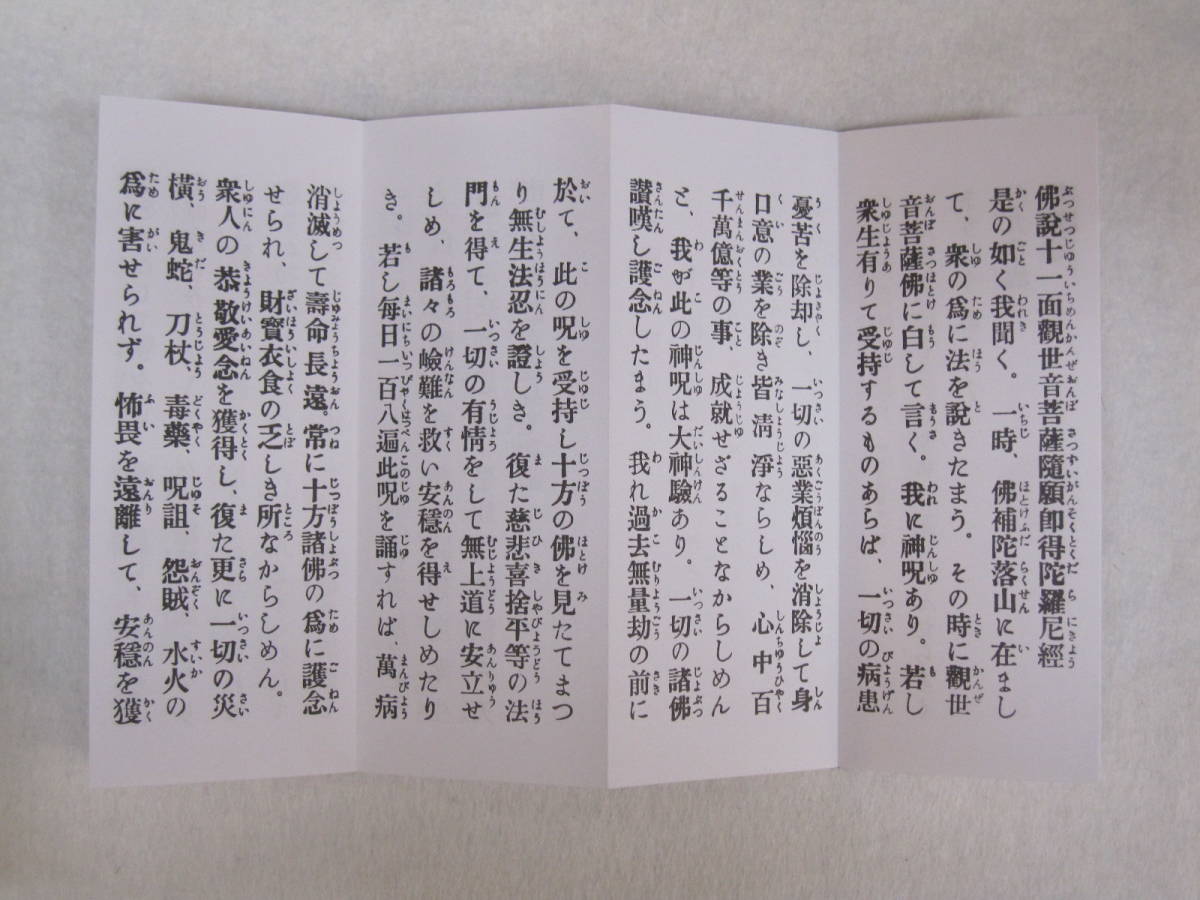 佛說十一面觀世音菩薩隨願卽得陀羅尼經
是の如く我聞く。一時、佛補陀落山に在まし
て、衆の爲に法を說きたまう。その時に觀世
音菩薩佛に白して言く。我に神呪あり。若し
衆生有りて受持するものあらば、一切の病患
憂苦を除却し、一切の惡業煩惱を消除して身
口意の業を除き皆淸淨ならしめ、心中百
千萬億等の事、成就せざることなからしめん
と、我が此の神呪は大神驗あり。一切の諸佛
讃嘆し護念したまう。我れ過去無量劫の前に
於て、此の呪を受持し十方の佛を見たてまつ
り無生法忍を證しき。復た慈悲喜捨平等の法
門を得て、一切の有情をして無上道に安立せ
しめ、諸々の嶮難を救い安穩を得せしめたり
き。若し每日一百八遍此呪を誦すれば、萬病
消滅して壽命長遠。常に十方諸佛の爲に護念
せられ、財寶衣食の乏しき所なからしめん。
衆人の恭敬愛念を獲得し、復た更に一切の災
橫、鬼蛇、刀杖、毒藥、呪詛、怨賊、水火の
爲に害せられず。怖畏を遠離して、安穩を獲